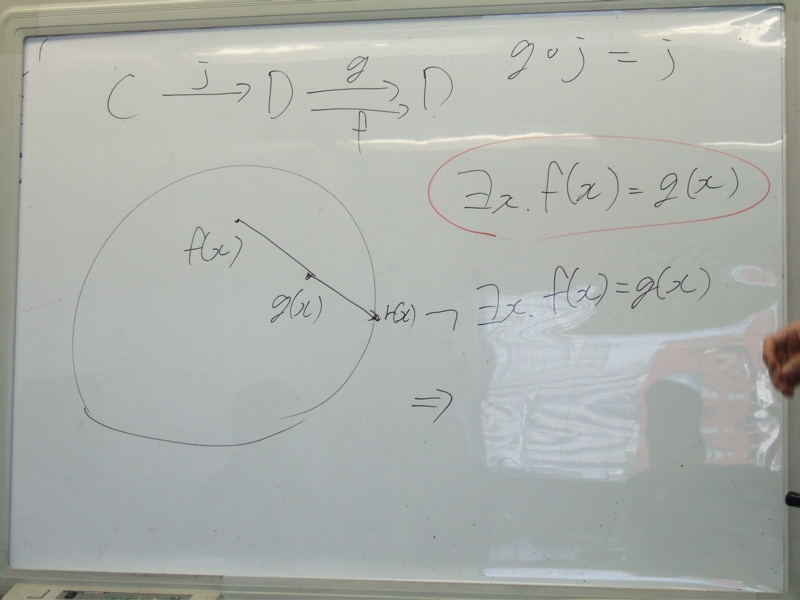 C j→ D g⇉f D g∘j = j
∃x. f(x) = g(x)
f(x)
g(x)
r(x) ¬ ∃x. f(x) = g(x)
⇒